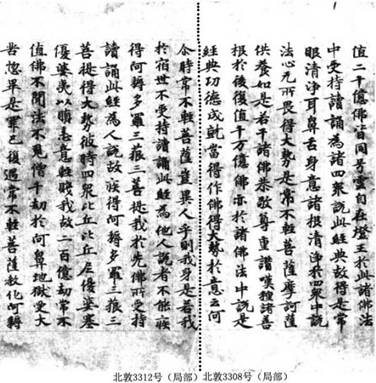 值二千億佛皆同号雲自在燈王於此諸佛法
中受持讀誦為諸四眾說此經典故得是常
眼清淨耳鼻舌身意諸根清淨於四眾中說
法心无所畏得大勢是常不輕菩薩摩訶薩
供養如是若干諸佛恭敬尊重讚嘆種諸善
根於後復值千万億佛亦於諸佛法中說是
經典功德成就當得作佛得大勢於意云何
尒時常不輕菩薩豈異人乎則我身是若我
於宿世不受持讀誦此經為他人說者不能疾
得阿耨多羅三藐三菩提我於先佛所受持
讀誦此經為人說故疾得阿耨多羅三藐三
菩提得大勢彼時四眾比丘比丘尼優婆塞
優婆夷以瞋恚意輕賤我故二百億劫常不
值佛不聞法不見僧千劫於阿鼻地獄受大
苦惱畢是罪已復遇常不輕菩薩教化阿耨
北敦3312号（局部） 北敦3308号（局部）